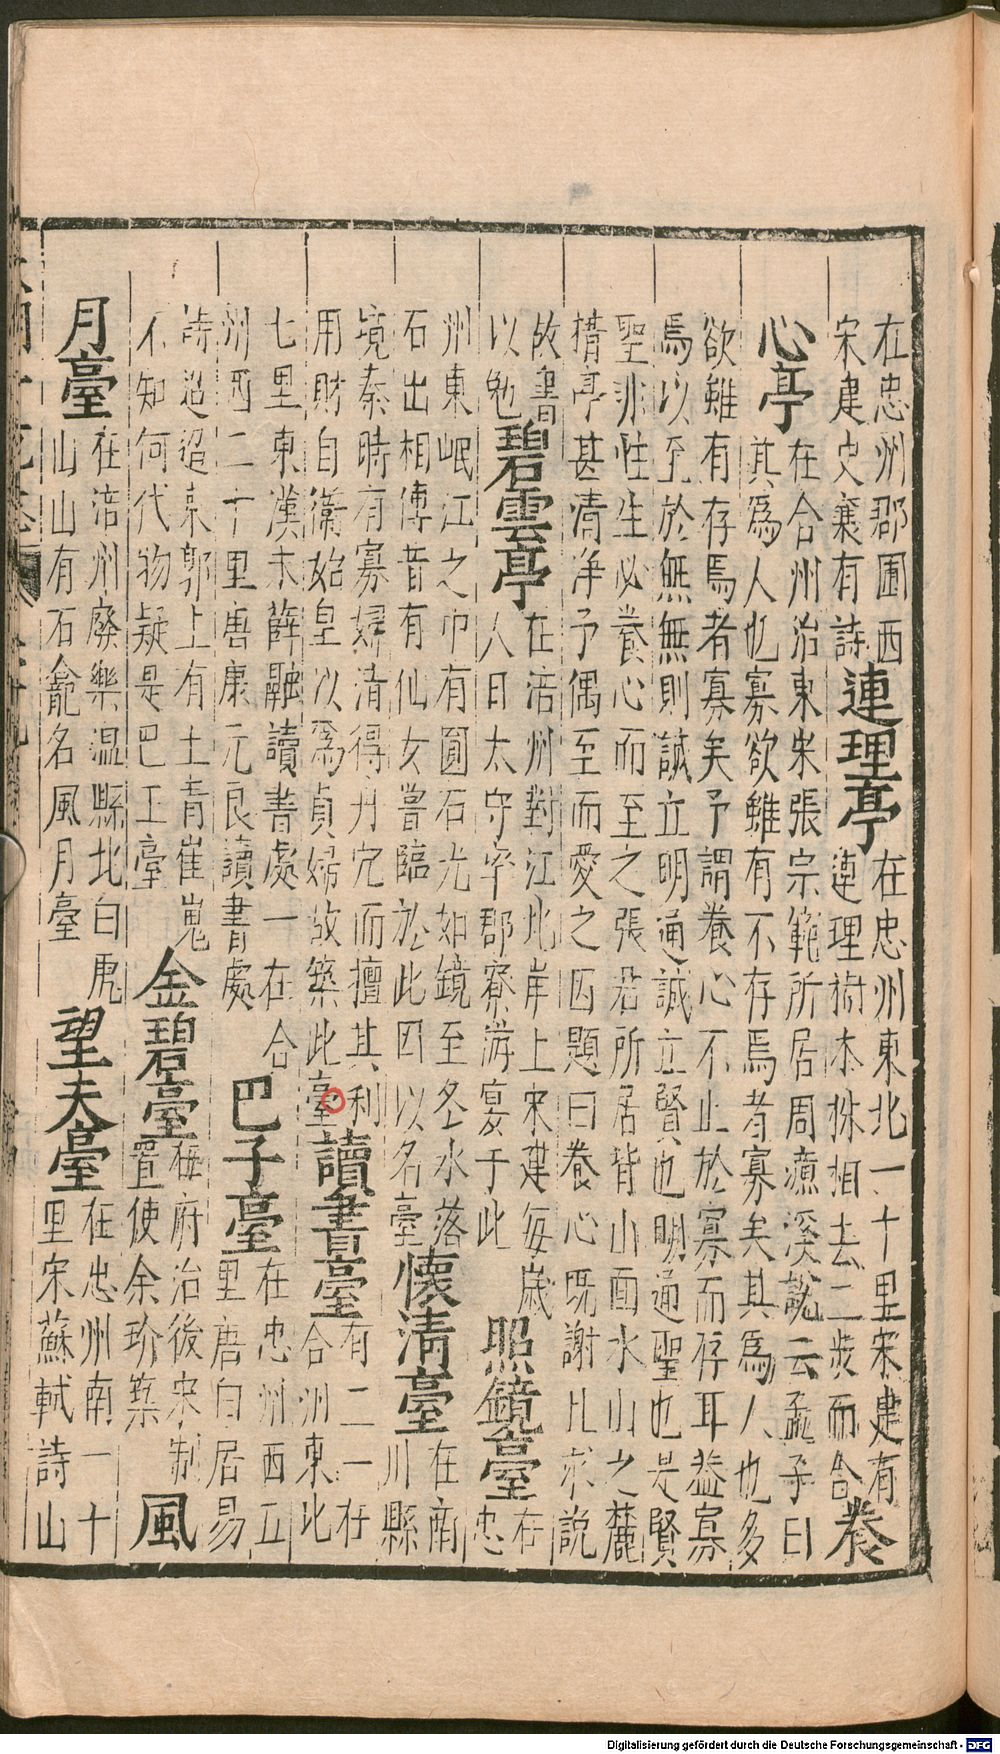 在忠州郡圃西
宋建史襄有詩
連理亭
在忠州東北一十里宋建有
連理樹本株相去二步而合
養
心亭
在合州治東宋張宗範所居周濂溪說云孟子曰
其爲人也寡欲雖有不存焉者寡矣其爲人也多
欲雖有存焉者寡矣予謂養心不止於寡而存耳蓋寡
焉以至於無無則誠立明通誠立賢也明通聖也是賢
聖非性生必養心而至之張君所居背山面水山之麓
搆亭甚清淨予偶至而愛之因題曰養心既謝且求說
故書
以勉
碧雲亭
在涪州對江北岸上宋建每歲
人日太守率郡寮游宴于此
照鏡臺
在
忠
州東岷江之中有圓石光如鏡至冬水落
石出相傳昔有仙女嘗臨於此因以名臺
懷清臺
在南
川縣
境秦時有寡婦清得丹穴而擅其利
用財自衛始皇以爲貞婦故築此臺
讀書臺
有二一在
合州東北
七里東漢末薛融讀書處一在合
州西二十里唐康元良讀書處
巴子臺
在忠州西五
里唐白居易
詩迢迢東郭上有土青崔嵬
不知何代物疑是巴王臺
金碧臺
在府治後宋制
置使余玠築
風
月臺
在涪州廢樂溫縣北白虎
山山有石龕名風月臺
望夫臺
在忠州南一十
里宋蘇軾詩山
Digitalisierung gefördert durch die Deutsche Forschungsgemeinschaft - DFG